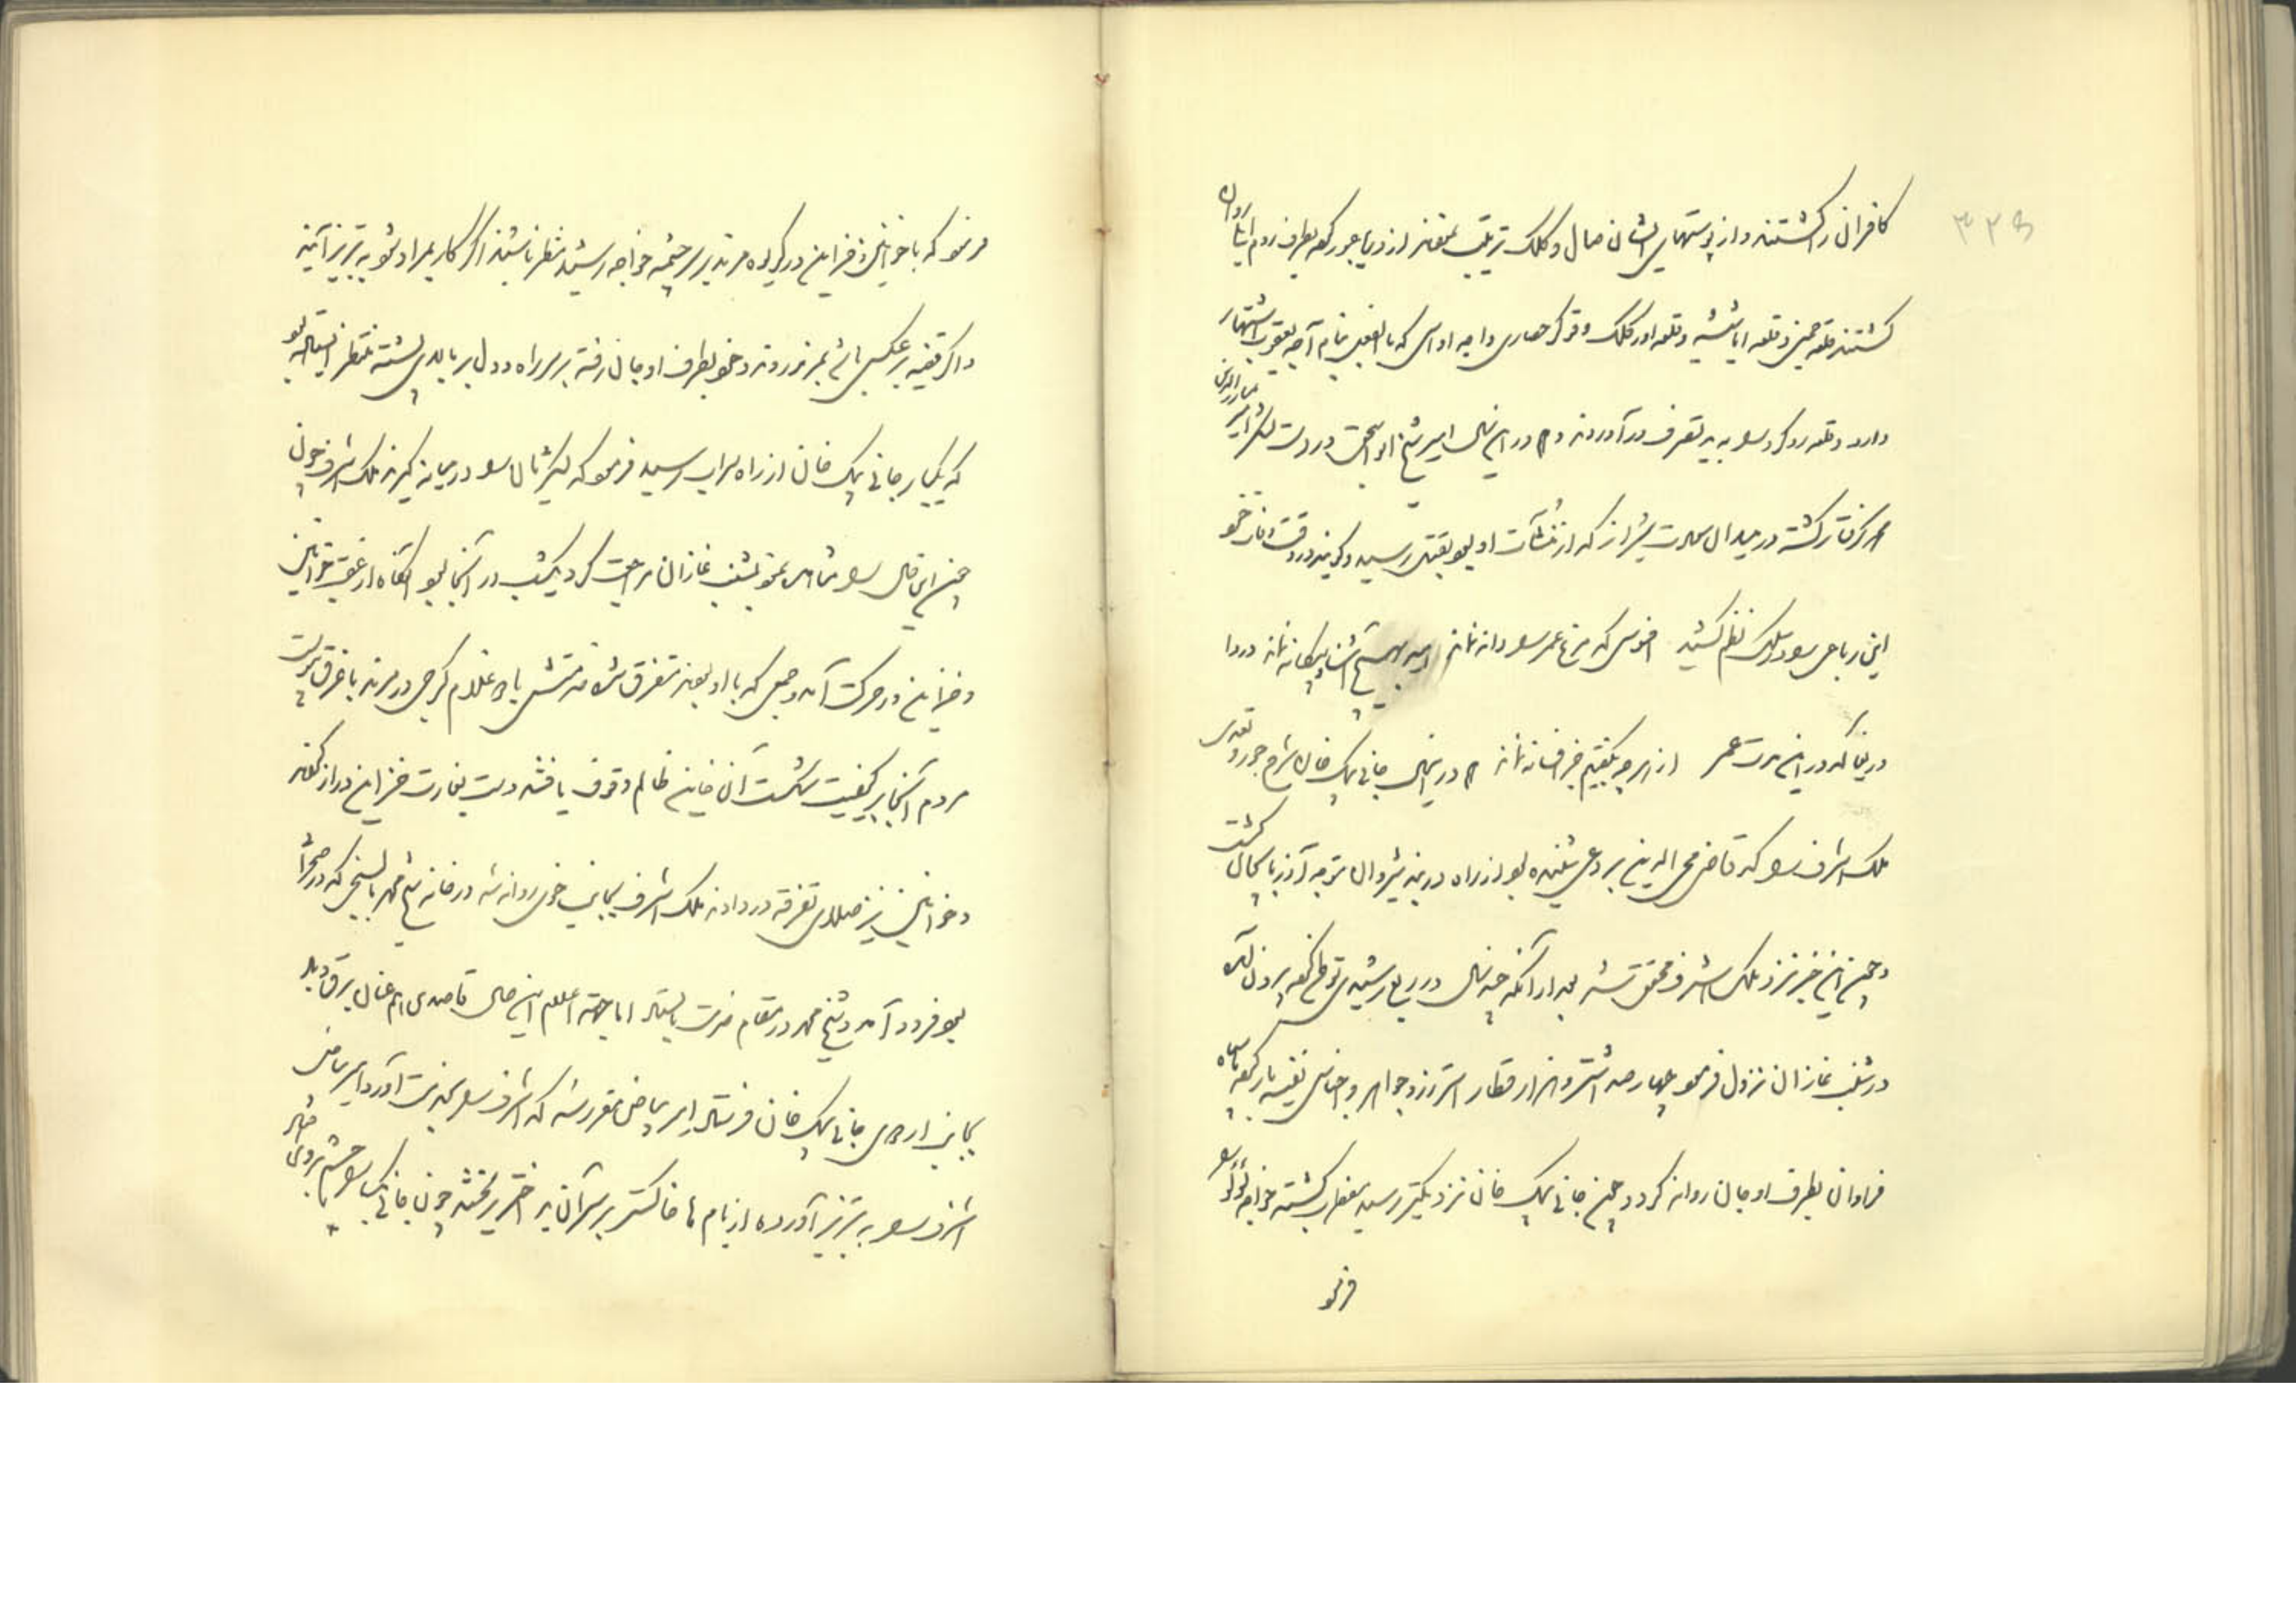 کافران را کشتند و از پوستهای ایشان صال و کلک ترتیب نموده از دریا عبور کرده بطرف روم ایلی روان
گشتند قلعه و قلعه و قلعه اودکلک و قوکر حصاری و آجه اواسی که بالفعل بنام آجه یعقوب اشتهار
دارد و قلعه ردکو را بدید تصرف درآوردند و هم در این سال امیر شیخ ابواسحق در دست لشکر امیر مبارزالدین
محمد گرفتار گشته در میدان سعادت شیراز که از منشآت او بود بقتل رسید و گویند در وقت وفات خود
این رباعی را در سلک نظم کشید افسوس که مرغ عمر را دانه نماند امید بهیچ خویش و بیگانه نماند دردا
دریغا که در این مدت عمر از هر چه بگفتیم جز افسانه نماند هم در این سال جانی بیک خان شرح جور و تعدی
ملک اشرف را که قاضی محی الدین بردعی شنیده بود از راه دربند شیروان متوجه آذربایجان گشت
و چون این خبر نزد ملک اشرف محقق شد بعد از آنکه چند سال در ربع رشیدی توطن کرده بیرون آمده
در شنب غازان نزول فرمود چهارصد استر و هزار قطار اشتر زر و جواهر و اجناس نفیسه بار کرده با سپاه
فراوان بطرف اوجان روانه کرد و چون جانی بیک خان نزدیکتر رسید مضطرب گشته خواجه لؤلؤ را
فرمود
فرمود که با خواتین و خزاین در گریوه مرند بر سر چشمه خواجه رشید منتظر باشید اگر کار بمراد شود به تبریز آیند
و اگر قضیه بر عکس باشد بمرند روند و خود بطرف اوجان رفته بر سر راه دول بر بالای پشته منتظر ایستاده بود
که یکبار جانی بیک خان از راه سراب رسید فرمود که لشکر شمال را در میان گیرند ملک اشرف چون
چون این حال را مشاهده نمود بشنب غازان مراجعت کرد یکشب در آنجا بود آنگاه از عقب خواتین
و خزاین در حرکت آمد و جمعی که با او بودند متفرق شدند با دو غلام گرجی در مرند با خزاین پیوست
مردم آنجا بر کیفیت شکست آن خاین ظالم وقوف یافته دست بغارت خزاین دراز کردند
و خواتین نیز صلای تفرقه در دادند ملک اشرف بجانب خوی روانه شد در خانه شیخ محمد بالیجی که در صحرا
بود فرود آمد و شیخ محمد در مقام خدمت بایستاد اما جهت اعلام این حال قاصدی هم عنان برق و باد
بجانب اردوی جانی بیک خان فرستاد امیر بیاض مقرر شد که اشرف را بخدمت آورد امیر بیاض
اشرف را به تبریز آورده از بام ها خاکستر بر سر آن بد اختر ریختند چون جانی بیک را چشم بر وی افتاد